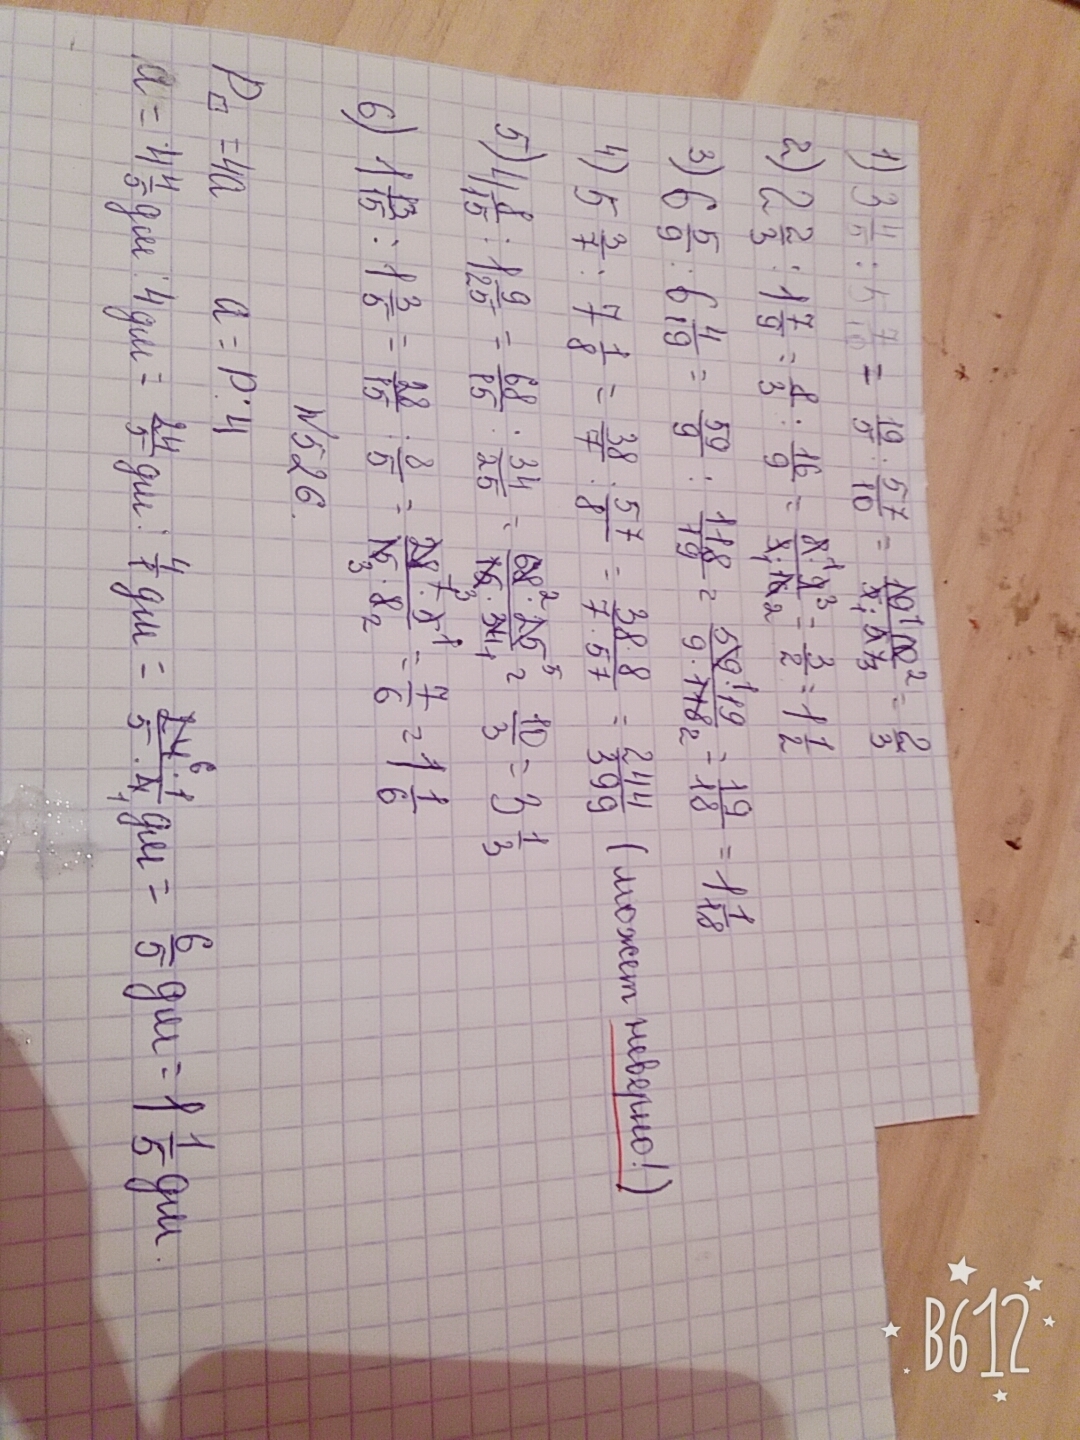 1) 3 4/5 : 5 7/10 = 19/5 : 57/10 = 19¹·10²/5₁·57₃ = 2/3
2) 2 2/3 : 1 7/9 = 8/3 : 16/9 = 8¹·9³/3₁·16₂ = 3/2 = 1 1/2
3) 6 5/9 : 6 4/19 = 59/9 : 118/19 = 59¹·19/9·118₂ = 19/18 = 1 1/18
4) 5 3/7 : 7 1/8 = 38/7 : 57/8 = 38·8/7·57 = 244/399 (может неверно!)
5) 4 8/15 : 1 9/25 = 68/15 : 34/25 = 68²·25⁵/15₃·34₁ = 10/3 = 3 1/3
6) 1 13/15 : 1 3/5 = 28/15 : 8/5 = 28⁷·5¹/15₃·8₂ = 7/6 = 1 1/6
№526.
P□ = 4a a = P:4
a = 4 4/5 дм : 4 дм = 24/5 дм : 4/1 дм = 24⁶·1/5·4₁ дм = 6/5 дм = 1 1/5 дм.
B612